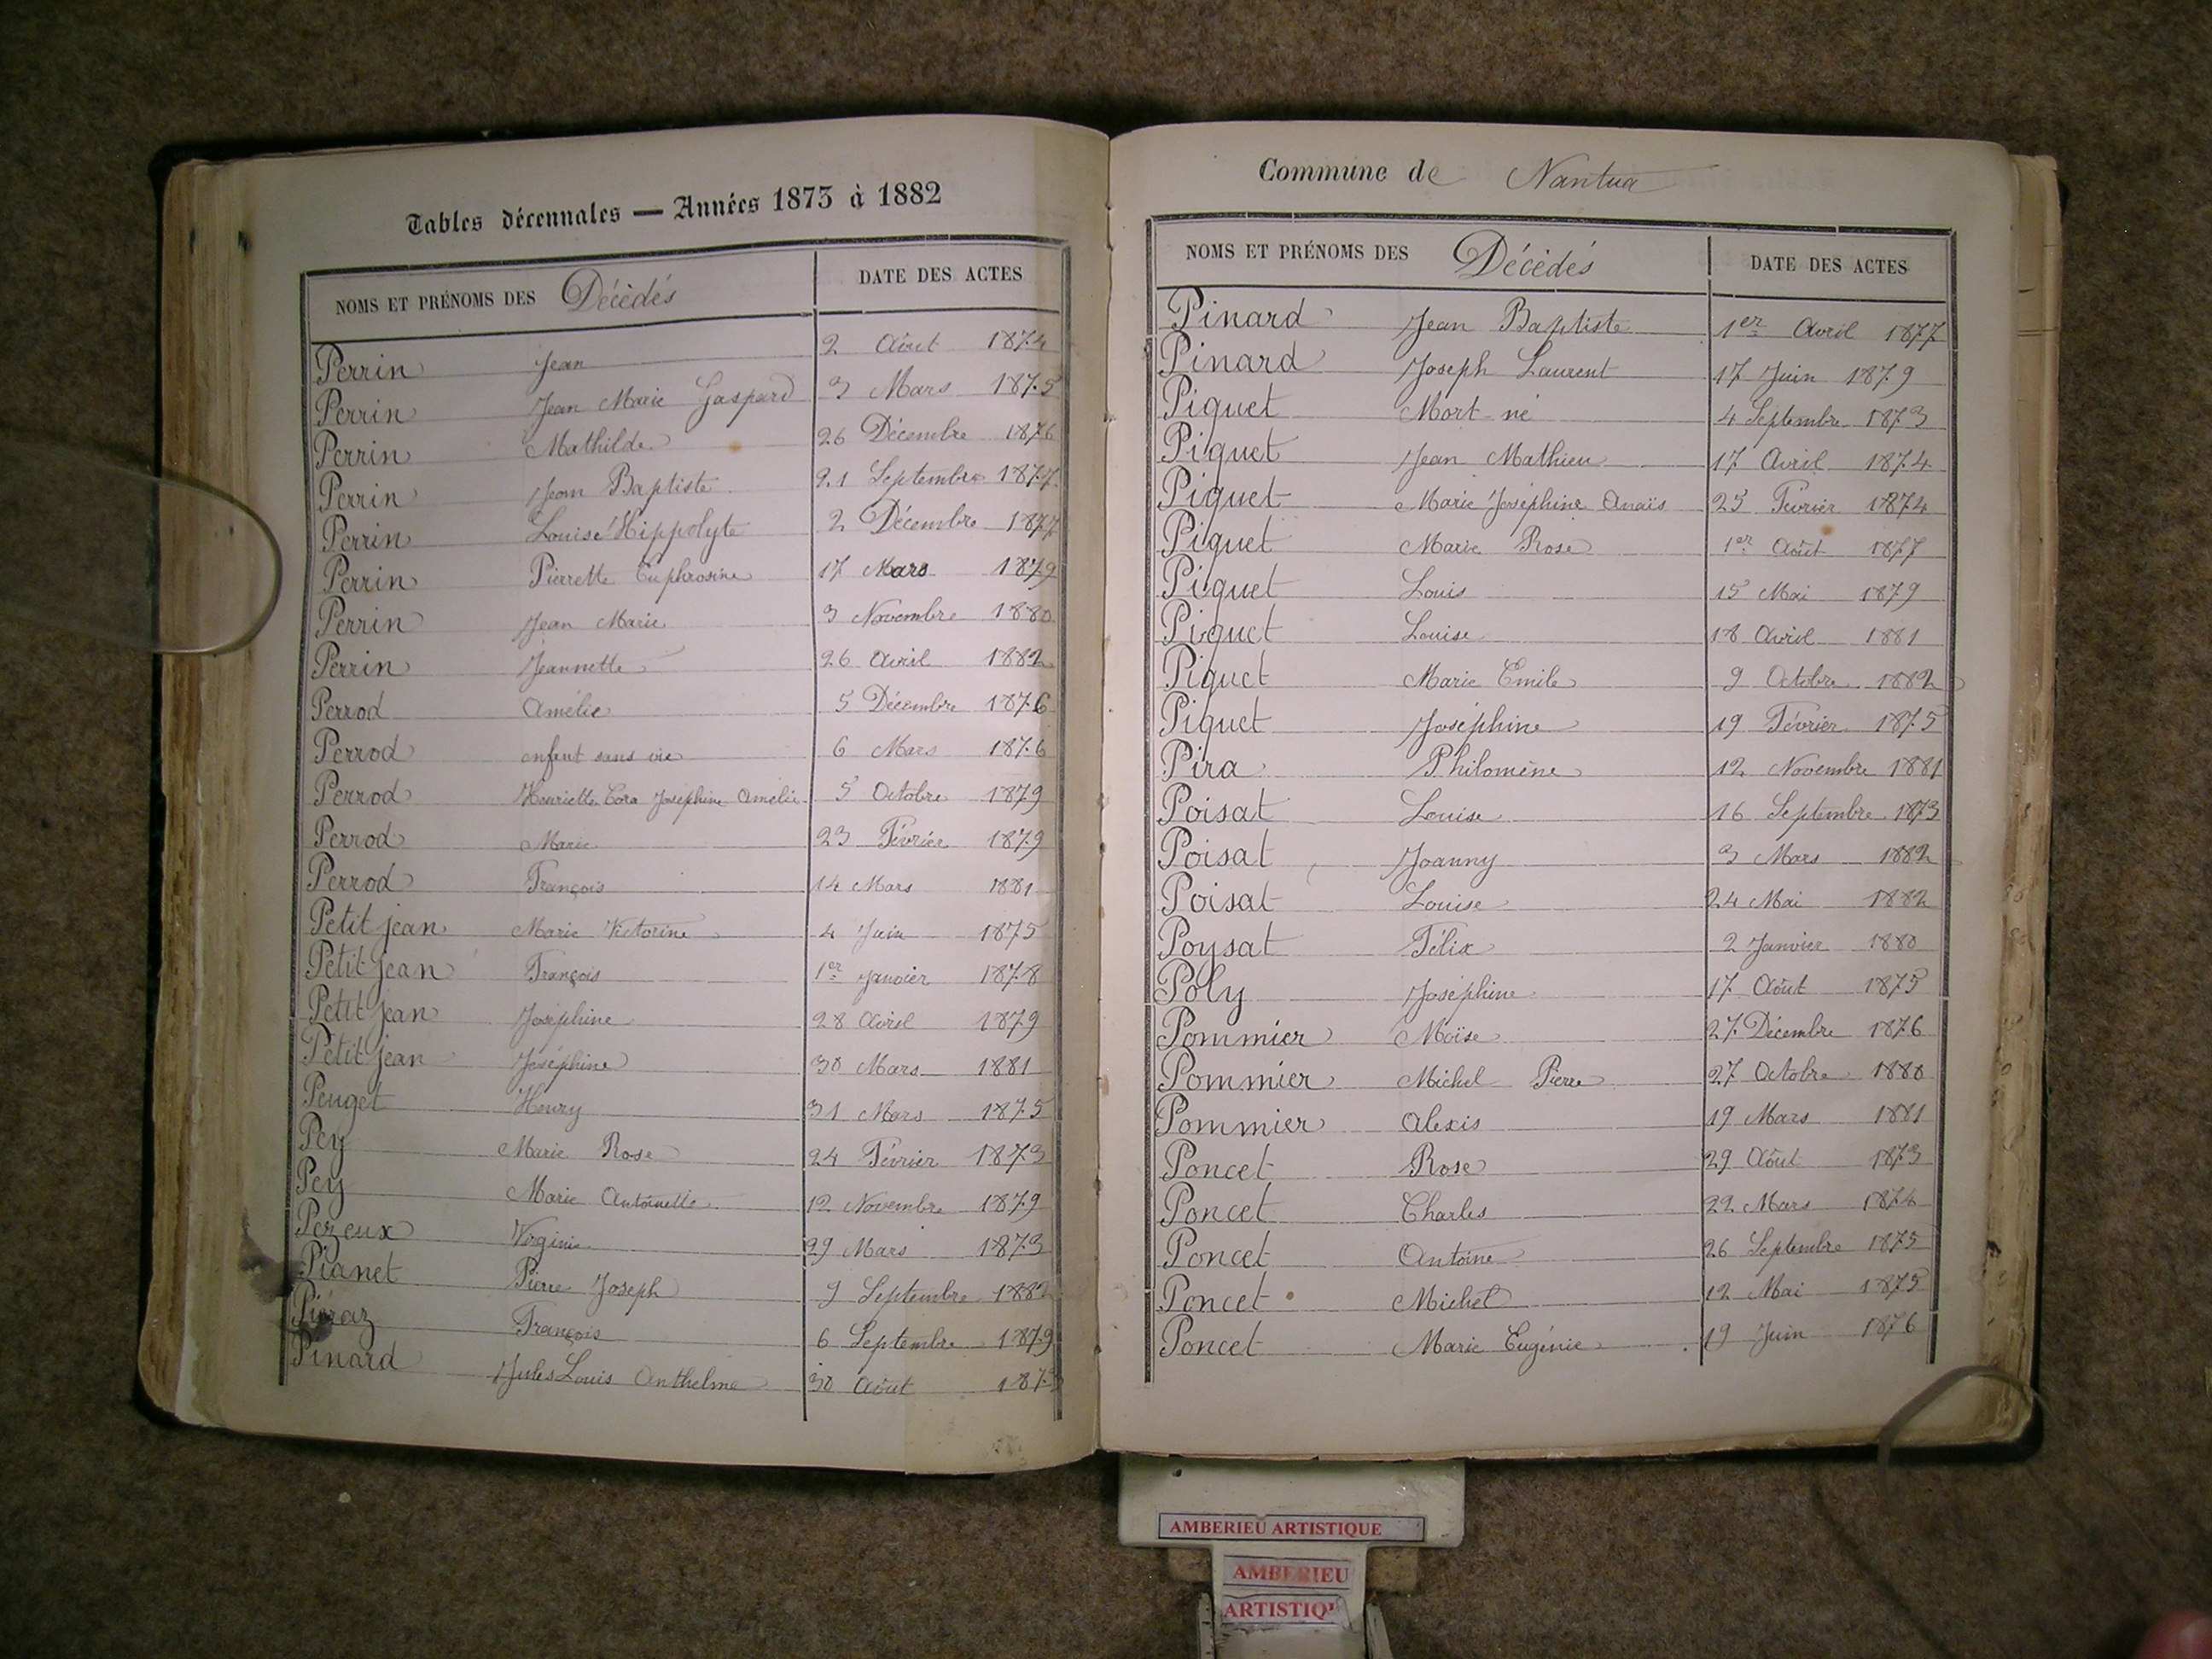 Tables décennales — Années 1873 à 1882
NOMS ET PRÉNOMS DES Décédés DATE DES ACTES
Perrin Jean 2 Août 1874
Perrin Jean Marie Gaspard 3 Mars 1875
Perrin Mathilde 26 Décembre 1876
Perrin Jean Baptiste 21 Septembre 1877
Perrin Louise Hippolyte 2 Décembre 1877
Perrin Pierrette Euphrosine 17 Mars 1879
Perrin Jean Marie 3 Novembre 1880
Perrin Jeannette 26 Avril 1882
Perrod Amélie 5 Décembre 1876
Perrod enfant sans vie 6 Mars 1876
Perrod Henriette Cora Joséphine Amélie 5 Octobre 1879
Perrod Marie 23 Février 1879
Perrod François 14 Mars 1881
Petit jean Marie Victorine 4 Juin 1875
Petit jean François 1er Janvier 1878
Petit jean Joséphine 28 Avril 1879
Petit jean Joséphine 30 Mars 1881
Peuget Henry 31 Mars 1875
Pey Marie Rose 24 Février 1873
Pey Marie Antoinette 12 Novembre 1879
Pezeux Virginie 29 Mars 1873
Pianet Pierre Joseph 9 Septembre 1882
François 6 Septembre 1879
Pinard Jules Louis Anthelme 30 Août 187
Commune de Nantua
NOMS ET PRÉNOMS DES Décédés DATE DES ACTES
Pinard Jean Baptiste 1er Avril 1877
Pinard Joseph Laurent 17 Juin 1879
Piquet Mort né 4 Septembre 1873
Piquet Jean Mathieu 17 Avril 1874
Piquet Marie Joséphine Anaïs 25 Février 1874
Piquet Marie Rose 1er Août 1877
Piquet Louis 15 Mai 1879
Piquet Louise 18 Avril 1881
Piquet Marie Emile 9 Octobre 1882
Piquet Joséphine 19 Février 1875
Pira Philomène 12 Novembre 1881
Poisat Louise 16 Septembre 1873
Poisat Joanny 3 Mars 1882
Poisat Louise 24 Mai 1882
Poysat Félix 2 Janvier 1880
Poly Joséphine 17 Août 1875
Pommier Moïse 27 Décembre 1876
Pommier Michel Pierre 27 Octobre 1880
Pommier Alexis 19 Mars 1881
Poncet Rose 29 Août 1873
Poncet Charles 22 Mars 1874
Poncet Antoine 26 Septembre 1875
Poncet Michel 12 Mai 1875
Poncet Marie Eugénie 19 Juin 1876
AMBERIEU ARTISTIQUE
AMBERIEU
ARTISTIQU